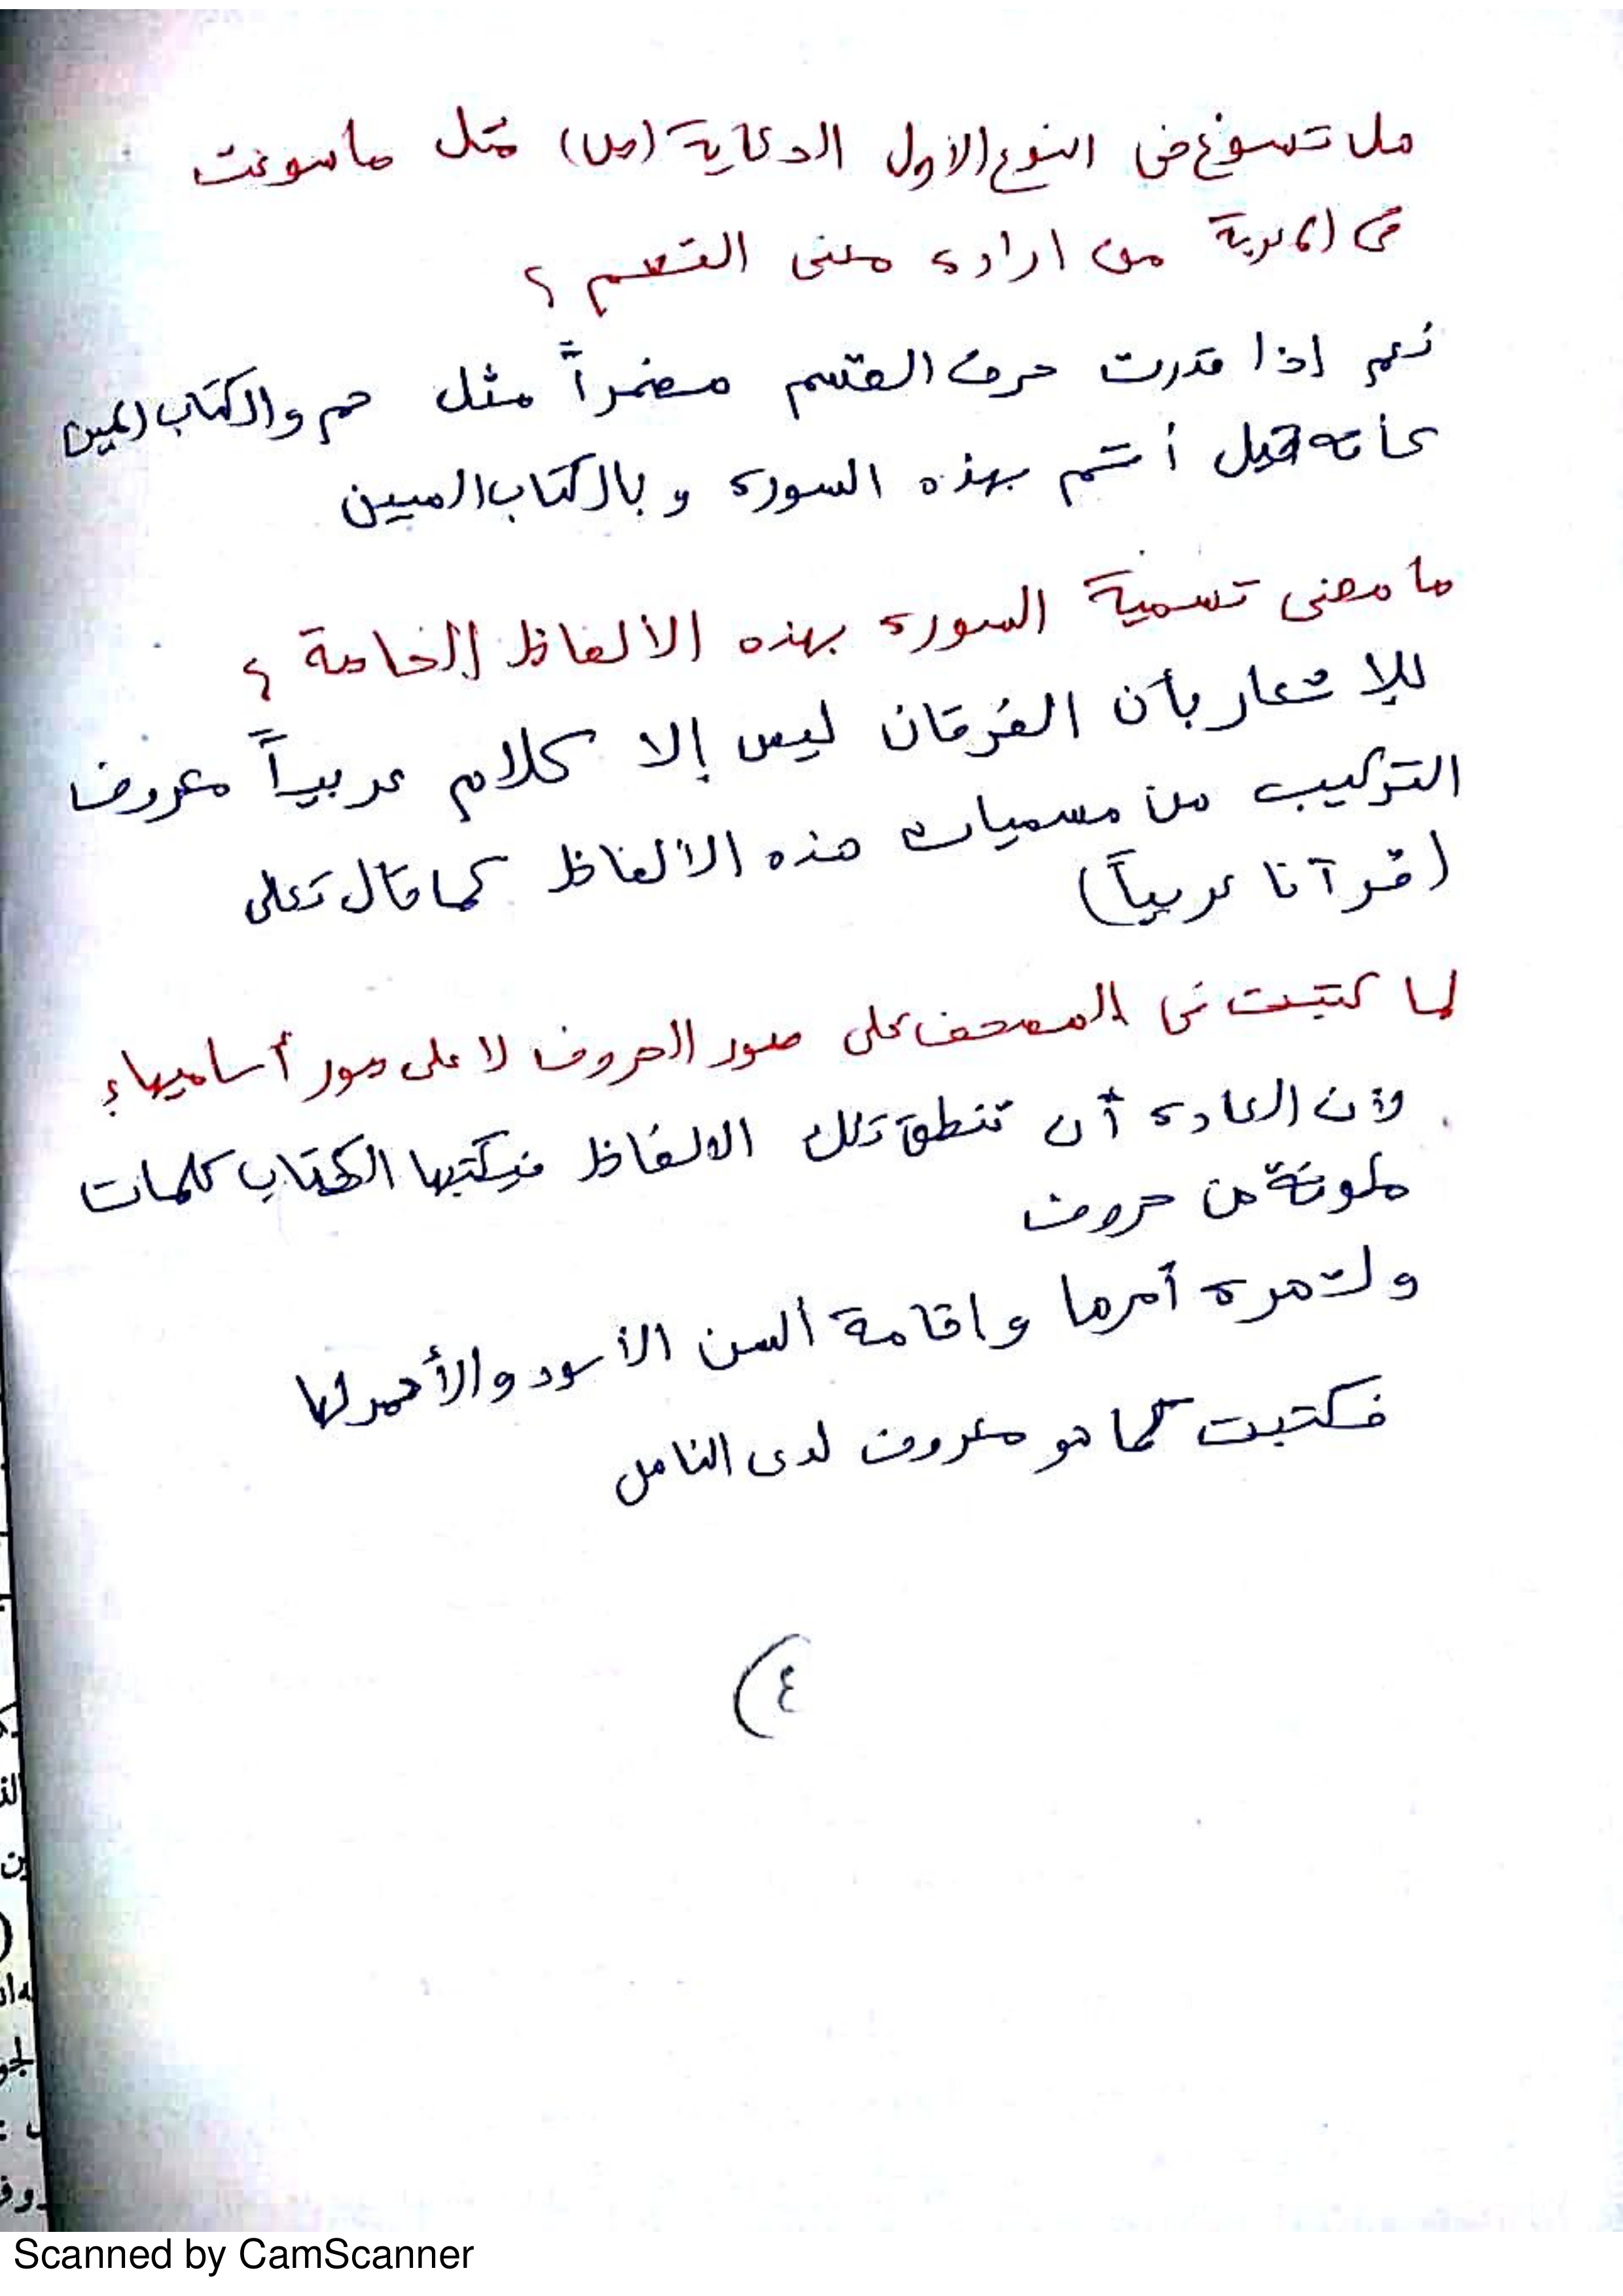 هل تسوغ في النوع الاول الحكاية (ص) مثل ما سوغت
في المعربة من ارادة معنى القسم ؟
نعم إذا قدرت حرف القسم مضمراً مثل حم والكتاب المبين
كأنه قيل أقسم بهذه السورة و بالكتاب المبين
ما معنى تسمية السورة بهذه الألفاظ الخاصة ؟
للإشعار بأن الفُرقان ليس إلا كلام عربياً معروف
التركيب من مسميات هذه الالفاظ كما قال تعلى
(قرآنا عربياً)
لما كتبت في المصحف على صور الحروف لا على صور أساميها ؟
لأن العادة أن تنطق تلك الالفاظ فيكتبها الكتاب كلمات
ملونة من حروف
و لشهرة أمرها و اقامة ألسن الأسود والأحمر لها
فكتبت كما هو معروف لدى الناس
(٤
Scanned by CamScanner